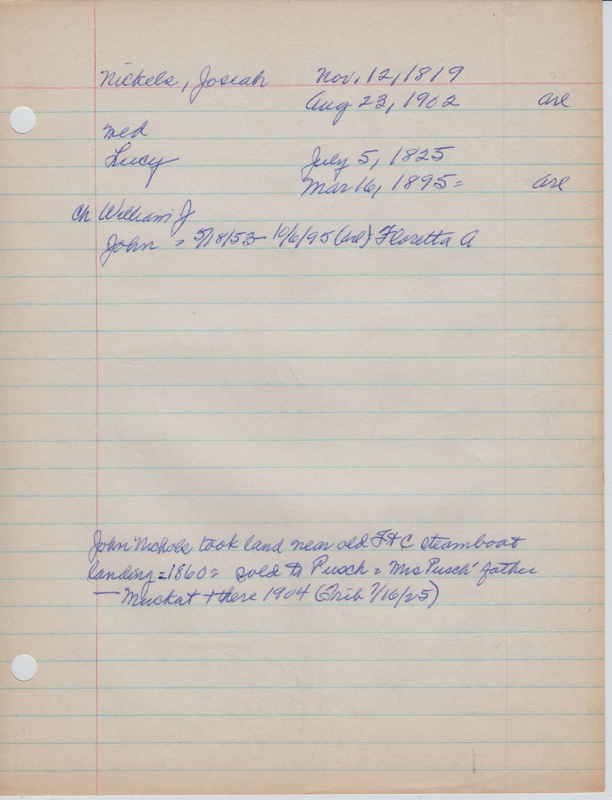 Nickels, Josiah Nov. 12, 1819
Aug 23, 1902 are
med
Lucy July 5, 1825
Mar 16, 1895= are
Ch William J
John = 5/18/53- 10/6/95 (are) Floretta A
John Nichols took land near old F+C steamboat
landing=1860= sold to Pusch = Mrs Pusch' father
— + there 1904 (Trib 7/16/25)